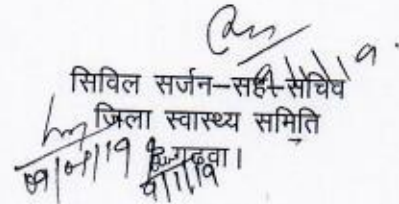 सिविल सर्जन–सह–सचिव
जिला स्वास्थ्य समिति
गढ़वा।
9/1/19